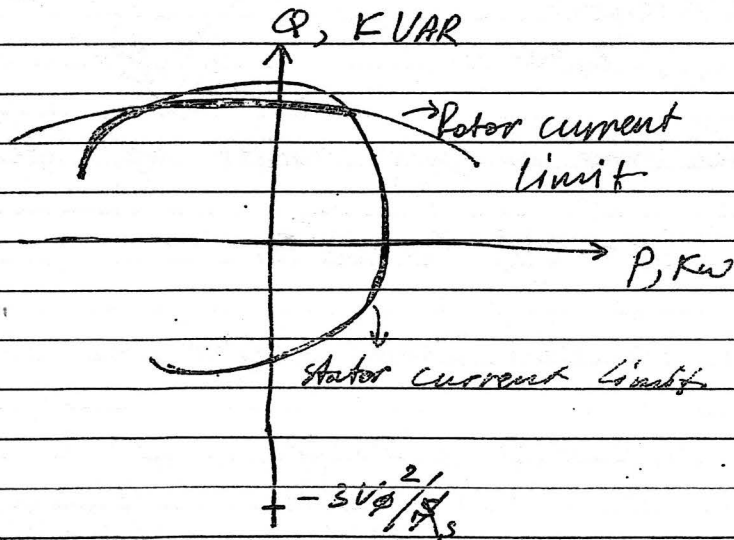 Q, KVAR
Rotor current
limit
P, Kw
Stator current limit
- 3Vφ²/Xs